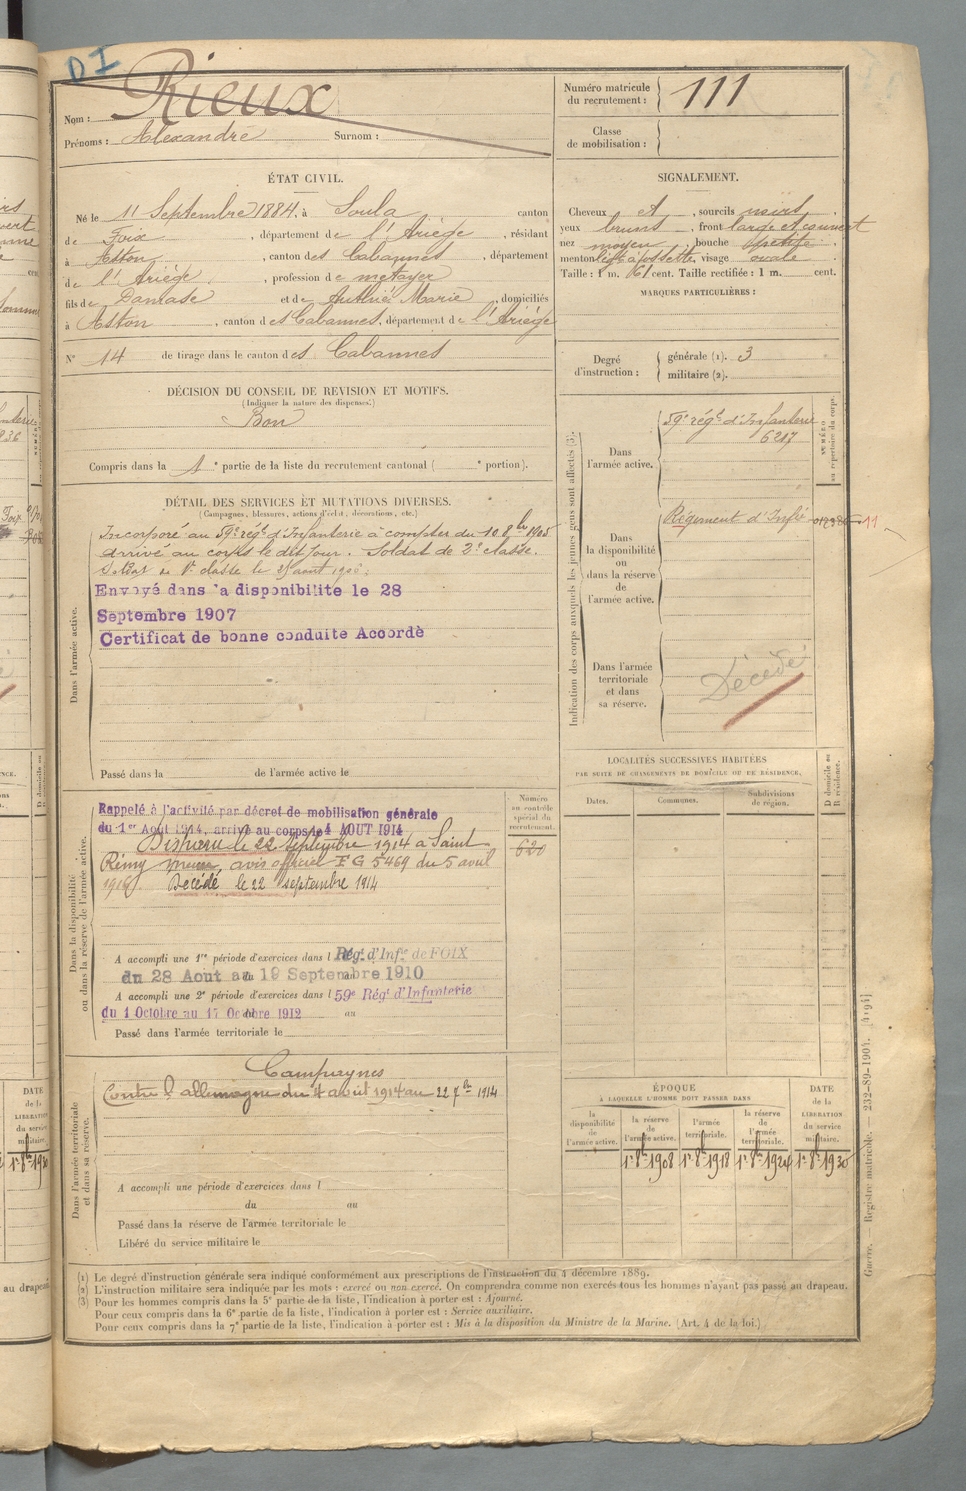 DI
Nom : Rieux
Prénoms : Alexandre Surnom :
Numéro matricule
du recrutement : 111
Classe
de mobilisation :
ÉTAT CIVIL.
Né le 11 Septembre 1884, à Soula canton
de Foix, département de l'Ariège, résidant
à Aston, canton des Cabannes, département
de l'Ariège, profession de métayer
fils de Damase et de Marie, domiciliés
à Aston, canton des Cabannes, département de l'Ariège
N° 14 de tirage dans le canton des Cabannes
SIGNALEMENT.
Cheveux et, sourcils noirs
yeux bruns, front large et couvert
nez moyen, bouche petite
menton à fossette, visage ovale
Taille : 1 m. 61 cent. Taille rectifiée : 1 m. cent.
MARQUES PARTICULIÈRES :
Degré
d'instruction :
générale (1). 3
militaire (2).
DÉCISION DU CONSEIL DE REVISION ET MOTIFS.
(Indiquer la nature des dispenses.)
Bon
Compris dans la 1e partie de la liste du recrutement cantonal ( e portion).
DÉTAIL DES SERVICES ET MUTATIONS DIVERSES.
(Campagnes, blessures, actions d'éclat, décorations, etc.)
Dans l'armée active.
Incorporé au 59e régt d'Infanterie à compter du 10 8bre 1905
arrivé au corps le dit jour. Soldat de 2e classe.
Soldat de 1e classe le août
Envoyé dans la disponibilite le 28
Septembre 1907
Certificat de bonne conduite Accordè
Passé dans la de l'armée active le
Indication des corps auxquels les jeunes gens sont affectés (3).
Dans
l'armée active.
59e régt d'Infanterie
6217
NUMÉRO
au répertoire du corps.
Dans
la disponibilité
ou
dans la réserve
de
l'armée active.
Régiment d'Infie
11
Dans l'armée
territoriale
et dans
sa réserve.
Décédé
Dans la disponibilité
ou dans la réserve de l'armée active.
Numéro
au contrôle
spécial du
recrutement.
620
Rappelé à l'activité par décret de mobilisation générale
du 1er Août 1914, arrivé au corps le 4 AOUT 1914
Disparu le 22 Septembre 1914 à Saint
Rémy avis officiel FG 5469 du 5 avril
1916. Décédé le 22 septembre 1914
A accompli une 1re période d'exercices dans l Régt d'Infie de FOIX
du 28 Aout au 19 Septembre 1910
A accompli une 2e période d'exercices dans l 59e Régt d'Infanterie
du 1 Octobre au 17 Octobre 1912 au
Passé dans l'armée territoriale le
LOCALITÉS SUCCESSIVES HABITÉES
PAR SUITE DE CHANGEMENTS DE DOMICILE OU DE RÉSIDENCE.
Dates. Communes. Subdivisions
de région.
D domicile ou
R résidence.
Dans l'armée territoriale
et dans sa réserve.
Campagnes
Contre l'allemagne du 4 août 1914 au 22 7bre 1914
A accompli une période d'exercices dans l
du au
Passé dans la réserve de l'armée territoriale le
Libéré du service militaire le
ÉPOQUE
À LAQUELLE L'HOMME DOIT PASSER DANS
la
disponibilité
de
l'armée active.
la réserve
de
l'armée active.
l'armée
territoriale.
la réserve
de
l'armée
territoriale.
DATE
de la
LIBÉRATION
du service
militaire.
1er 8bre 1908 1er 8bre 1918 1er 8bre 1924 1er 8bre 1930
(1) Le degré d'instruction générale sera indiqué conformément aux prescriptions de l'instruction du 4 décembre 1889.
(2) L'instruction militaire sera indiquée par les mots : exercé ou non exercé. On comprendra comme non exercés tous les hommes n'ayant pas passé au drapeau.
(3) Pour les hommes compris dans la 5e partie de la liste, l'indication à porter est : Ajourné.
Pour ceux compris dans la 6e partie de la liste, l'indication à porter est : Service auxiliaire.
Pour ceux compris dans la 7e partie de la liste, l'indication à porter est : Mis à la disposition du Ministre de la Marine. (Art. 4 de la loi.)
Guerre. — Registre matricule. — 232-89-1904. [4194]
DATE
de la
LIBÉRATION
du service
militaire.
1er 8bre 1930
au drapeau